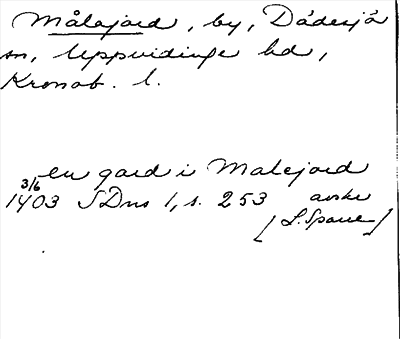 Målajord, by, Dådesjö
sn, Uppvidinge hd,
Kronob. l.
en gard i Malejord
3/6
1403 SDns 1, s. 253 avskr
[L. Sparre]